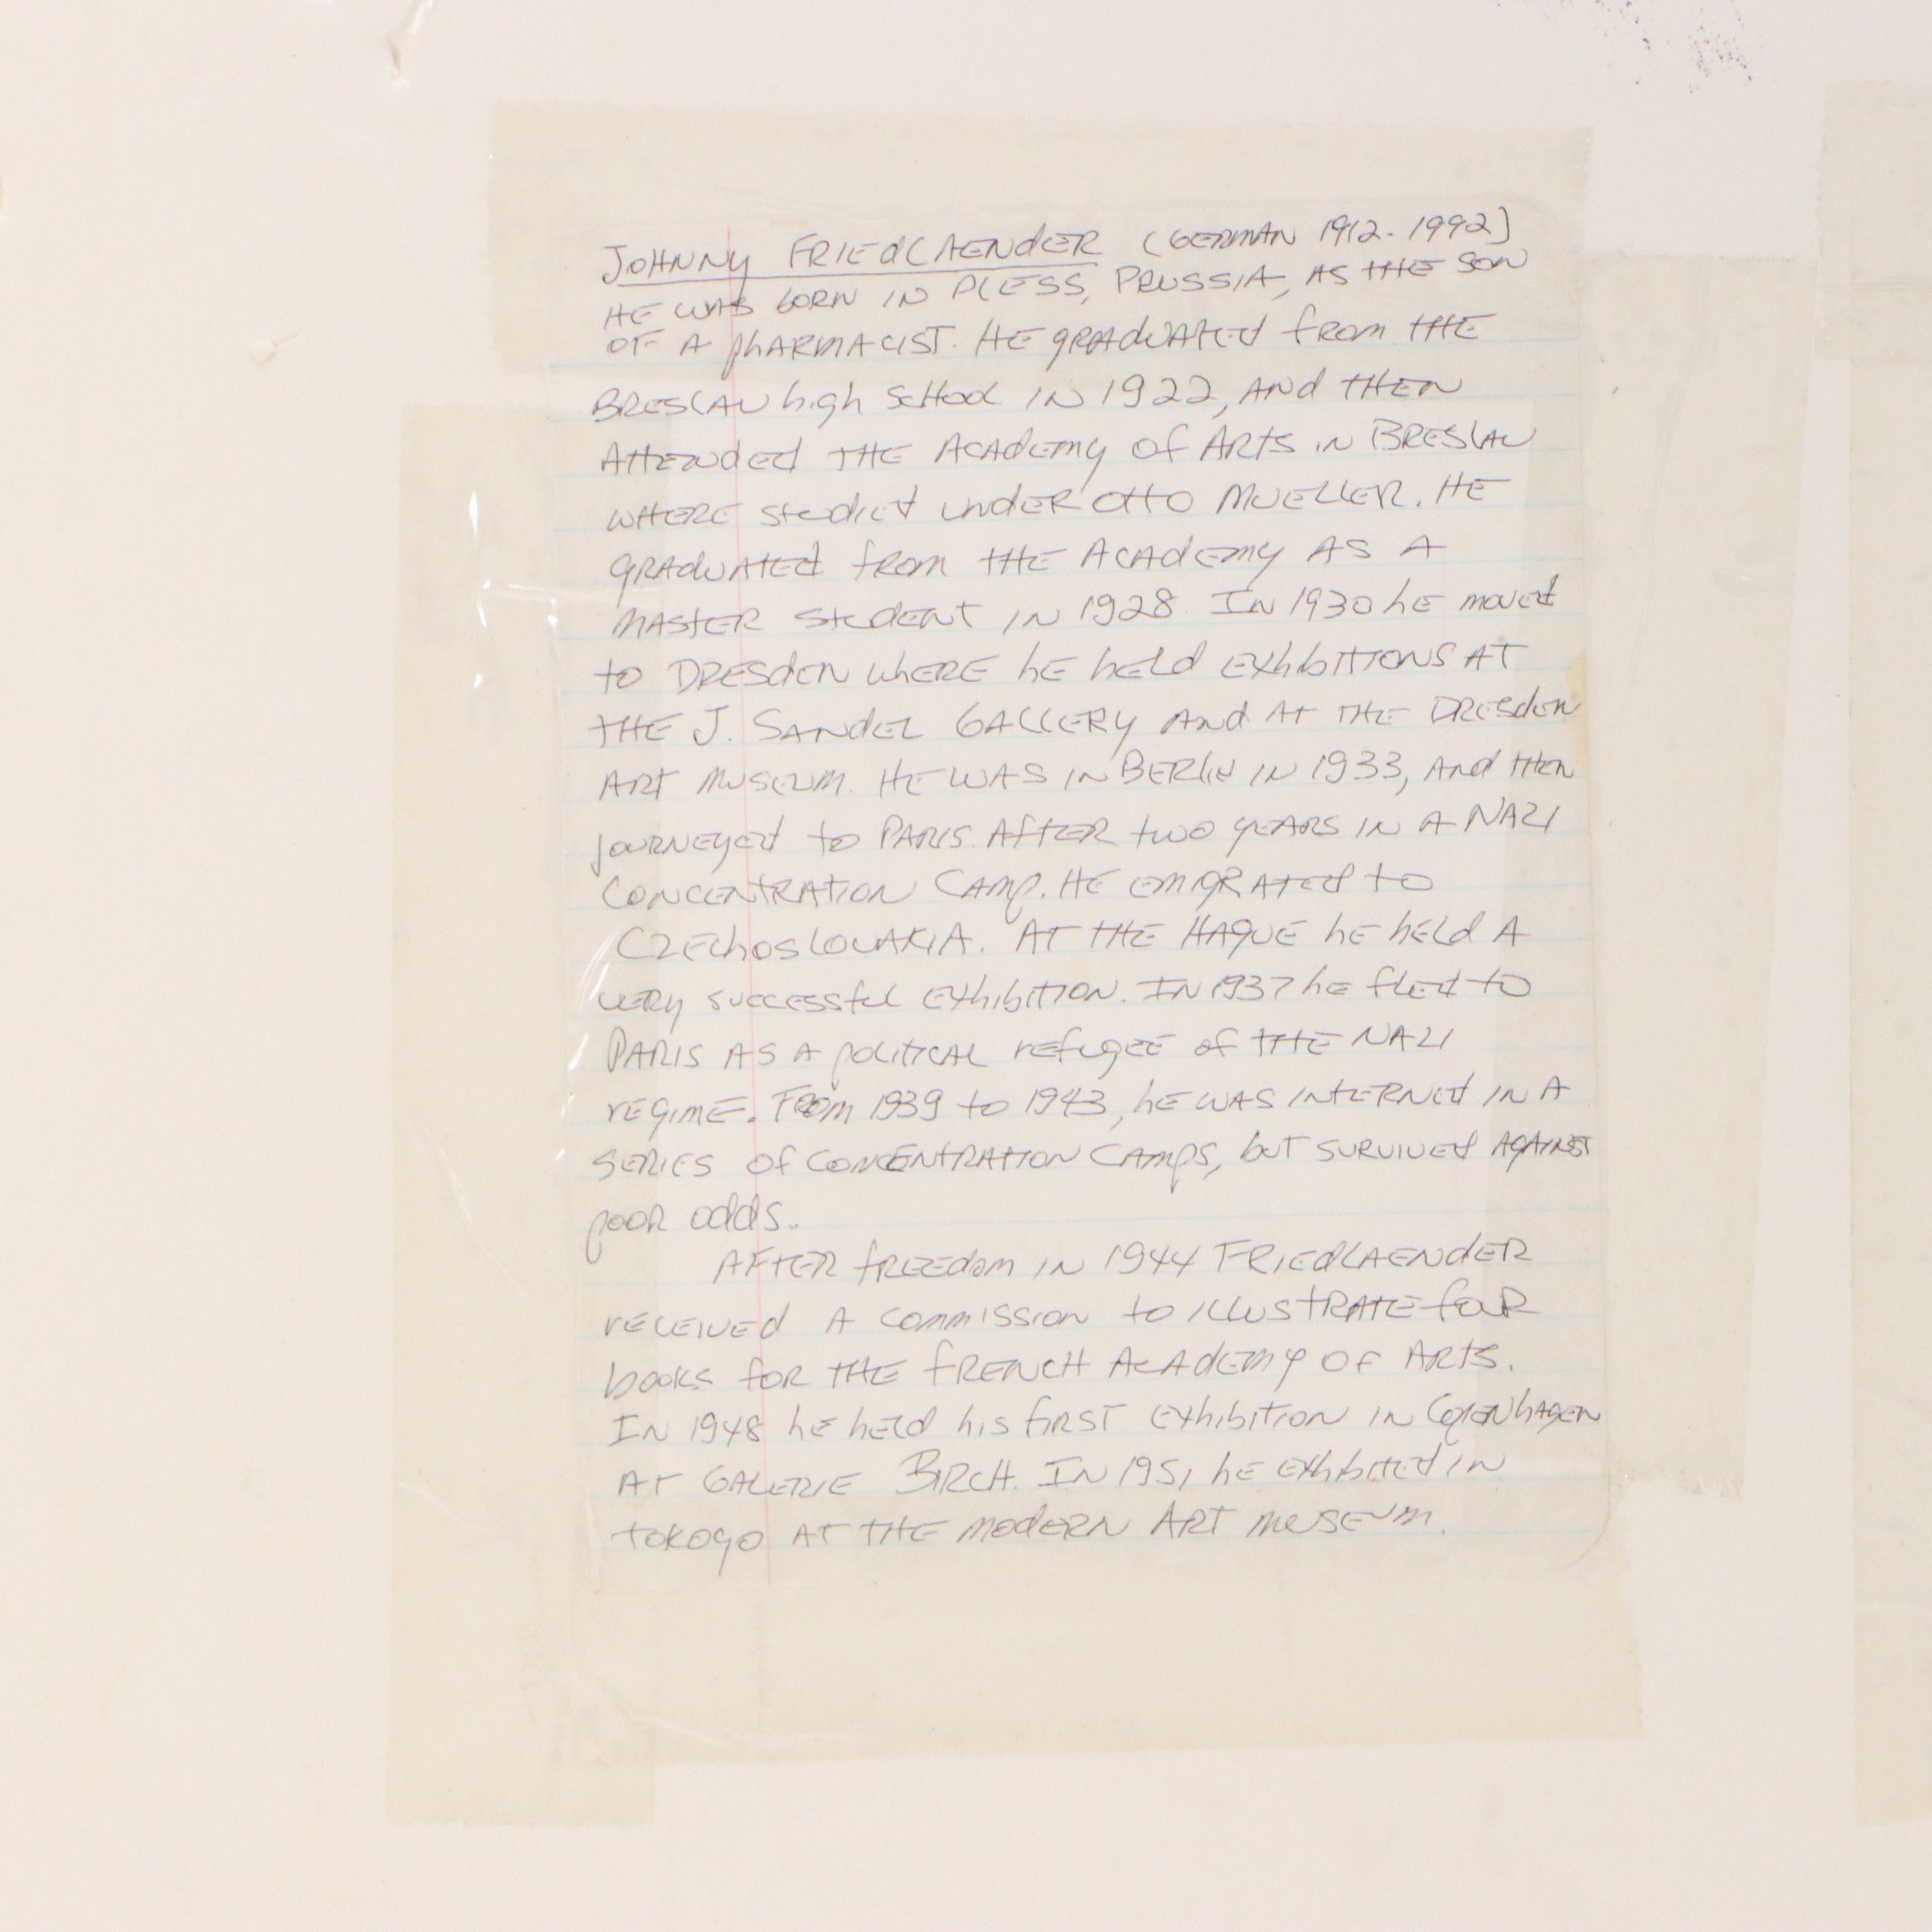 JOHNNY FRIEDLAENDER (GERMAN 1912-1992)
HE WAS BORN IN PLESS, PRUSSIA, AS THE SON
OF A PHARMACIST. HE GRADUATED FROM THE
BRESLAU high SCHOOL IN 1922, AND THEN
ATTENDED THE ACADEMY OF ARTS IN BRESLAU
WHERE STUDIED UNDER OTTO MUELLER. HE
GRADUATED FROM THE ACADEMY AS A
MASTER STUDENT IN 1928. IN 1930 HE MOVED
TO DRESDEN WHERE HE HELD EXHIBITIONS AT
THE J. SANDEL GALLERY AND AT THE DRESDEN
ART MUSEUM. HE WAS IN BERLIN IN 1933, AND THEN
JOURNEYED TO PARIS. AFTER TWO YEARS IN A NAZI
CONCENTRATION CAMP. HE EMIGRATED TO
CZECHOSLOVAKIA. AT THE HAGUE HE HELD A
VERY SUCCESSFUL EXHIBITION. IN 1937 HE FLED TO
PARIS AS A POLITICAL REFUGEE OF THE NAZI
REGIME. FROM 1939 TO 1943, HE WAS INTERNED IN A
SERIES OF CONCENTRATION CAMPS, BUT SURVIVED AGAINST
POOR ODDS..
AFTER FREEDOM IN 1944 FRIEDLAENDER
RECEIVED A COMMISSION TO ILLUSTRATE FOUR
BOOKS FOR THE FRENCH ACADEMY OF ARTS.
IN 1948 HE HELD HIS FIRST EXHIBITION IN COPENHAGEN
AT GALERIE BIRCH. IN 1951 HE EXHIBITED IN
TOKOYO AT THE MODERN ART MUSEUM.